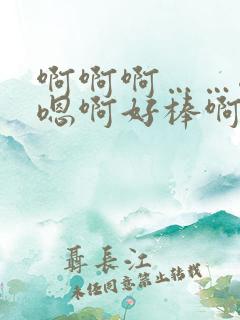 啊啊啊……
嗯啊好棒啊
聂长江
未经同意禁止转载